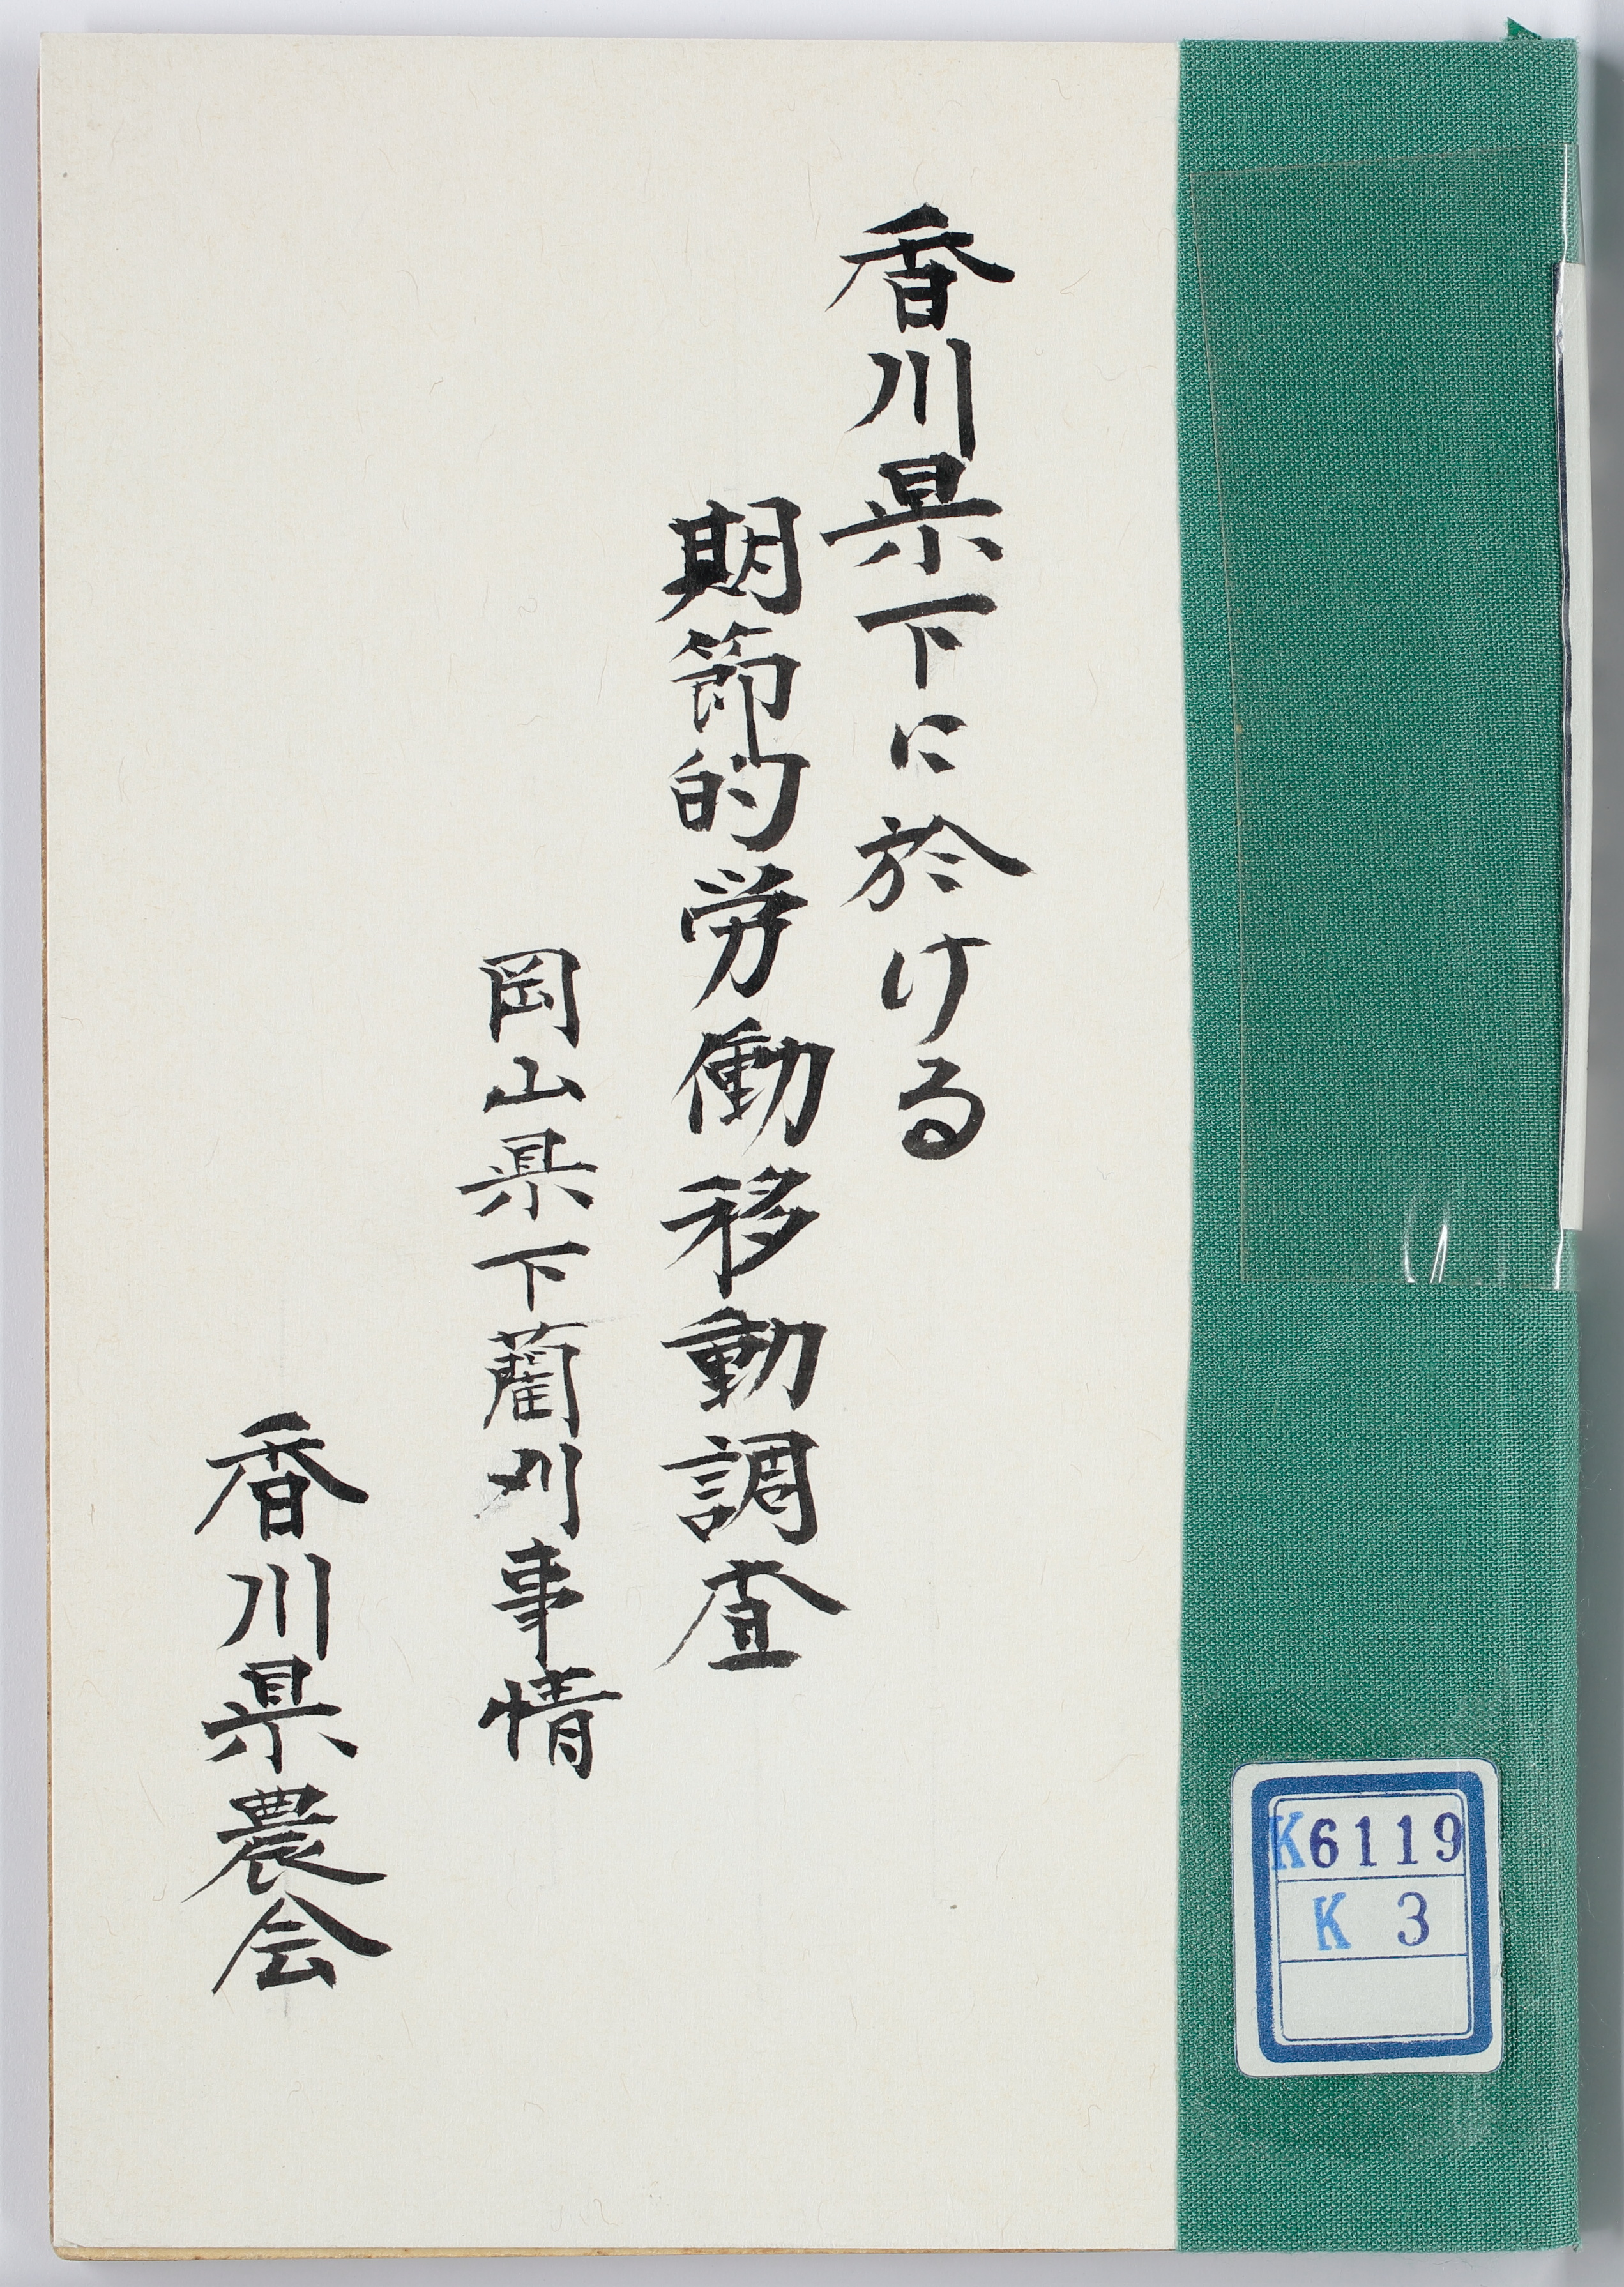 香川県下に於ける
期節的労働移動調査
岡山県下藺刈事情
香川県農会
K6119
K 3